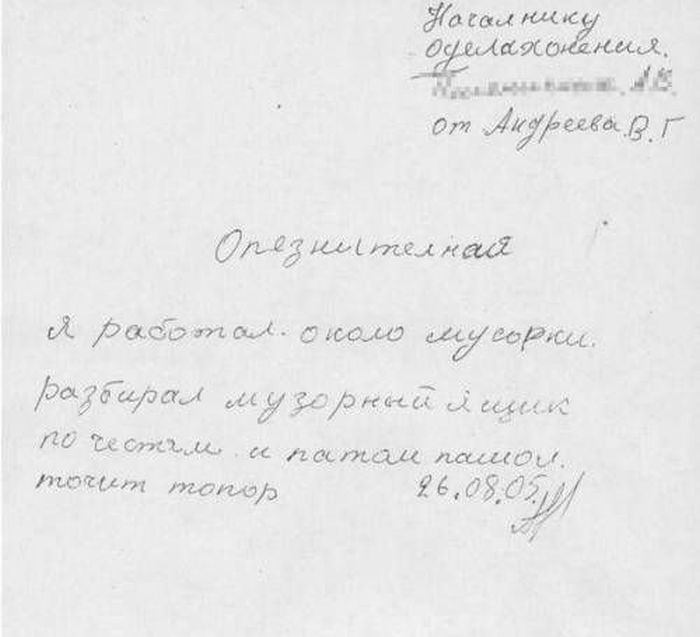 Началнику
оделахонения.
от Андреева В.Г
Опезнителная
я работал. около мусорки.
разбирал музорный ящик
по честям и патом пашол.
точит топор
26.08.05.